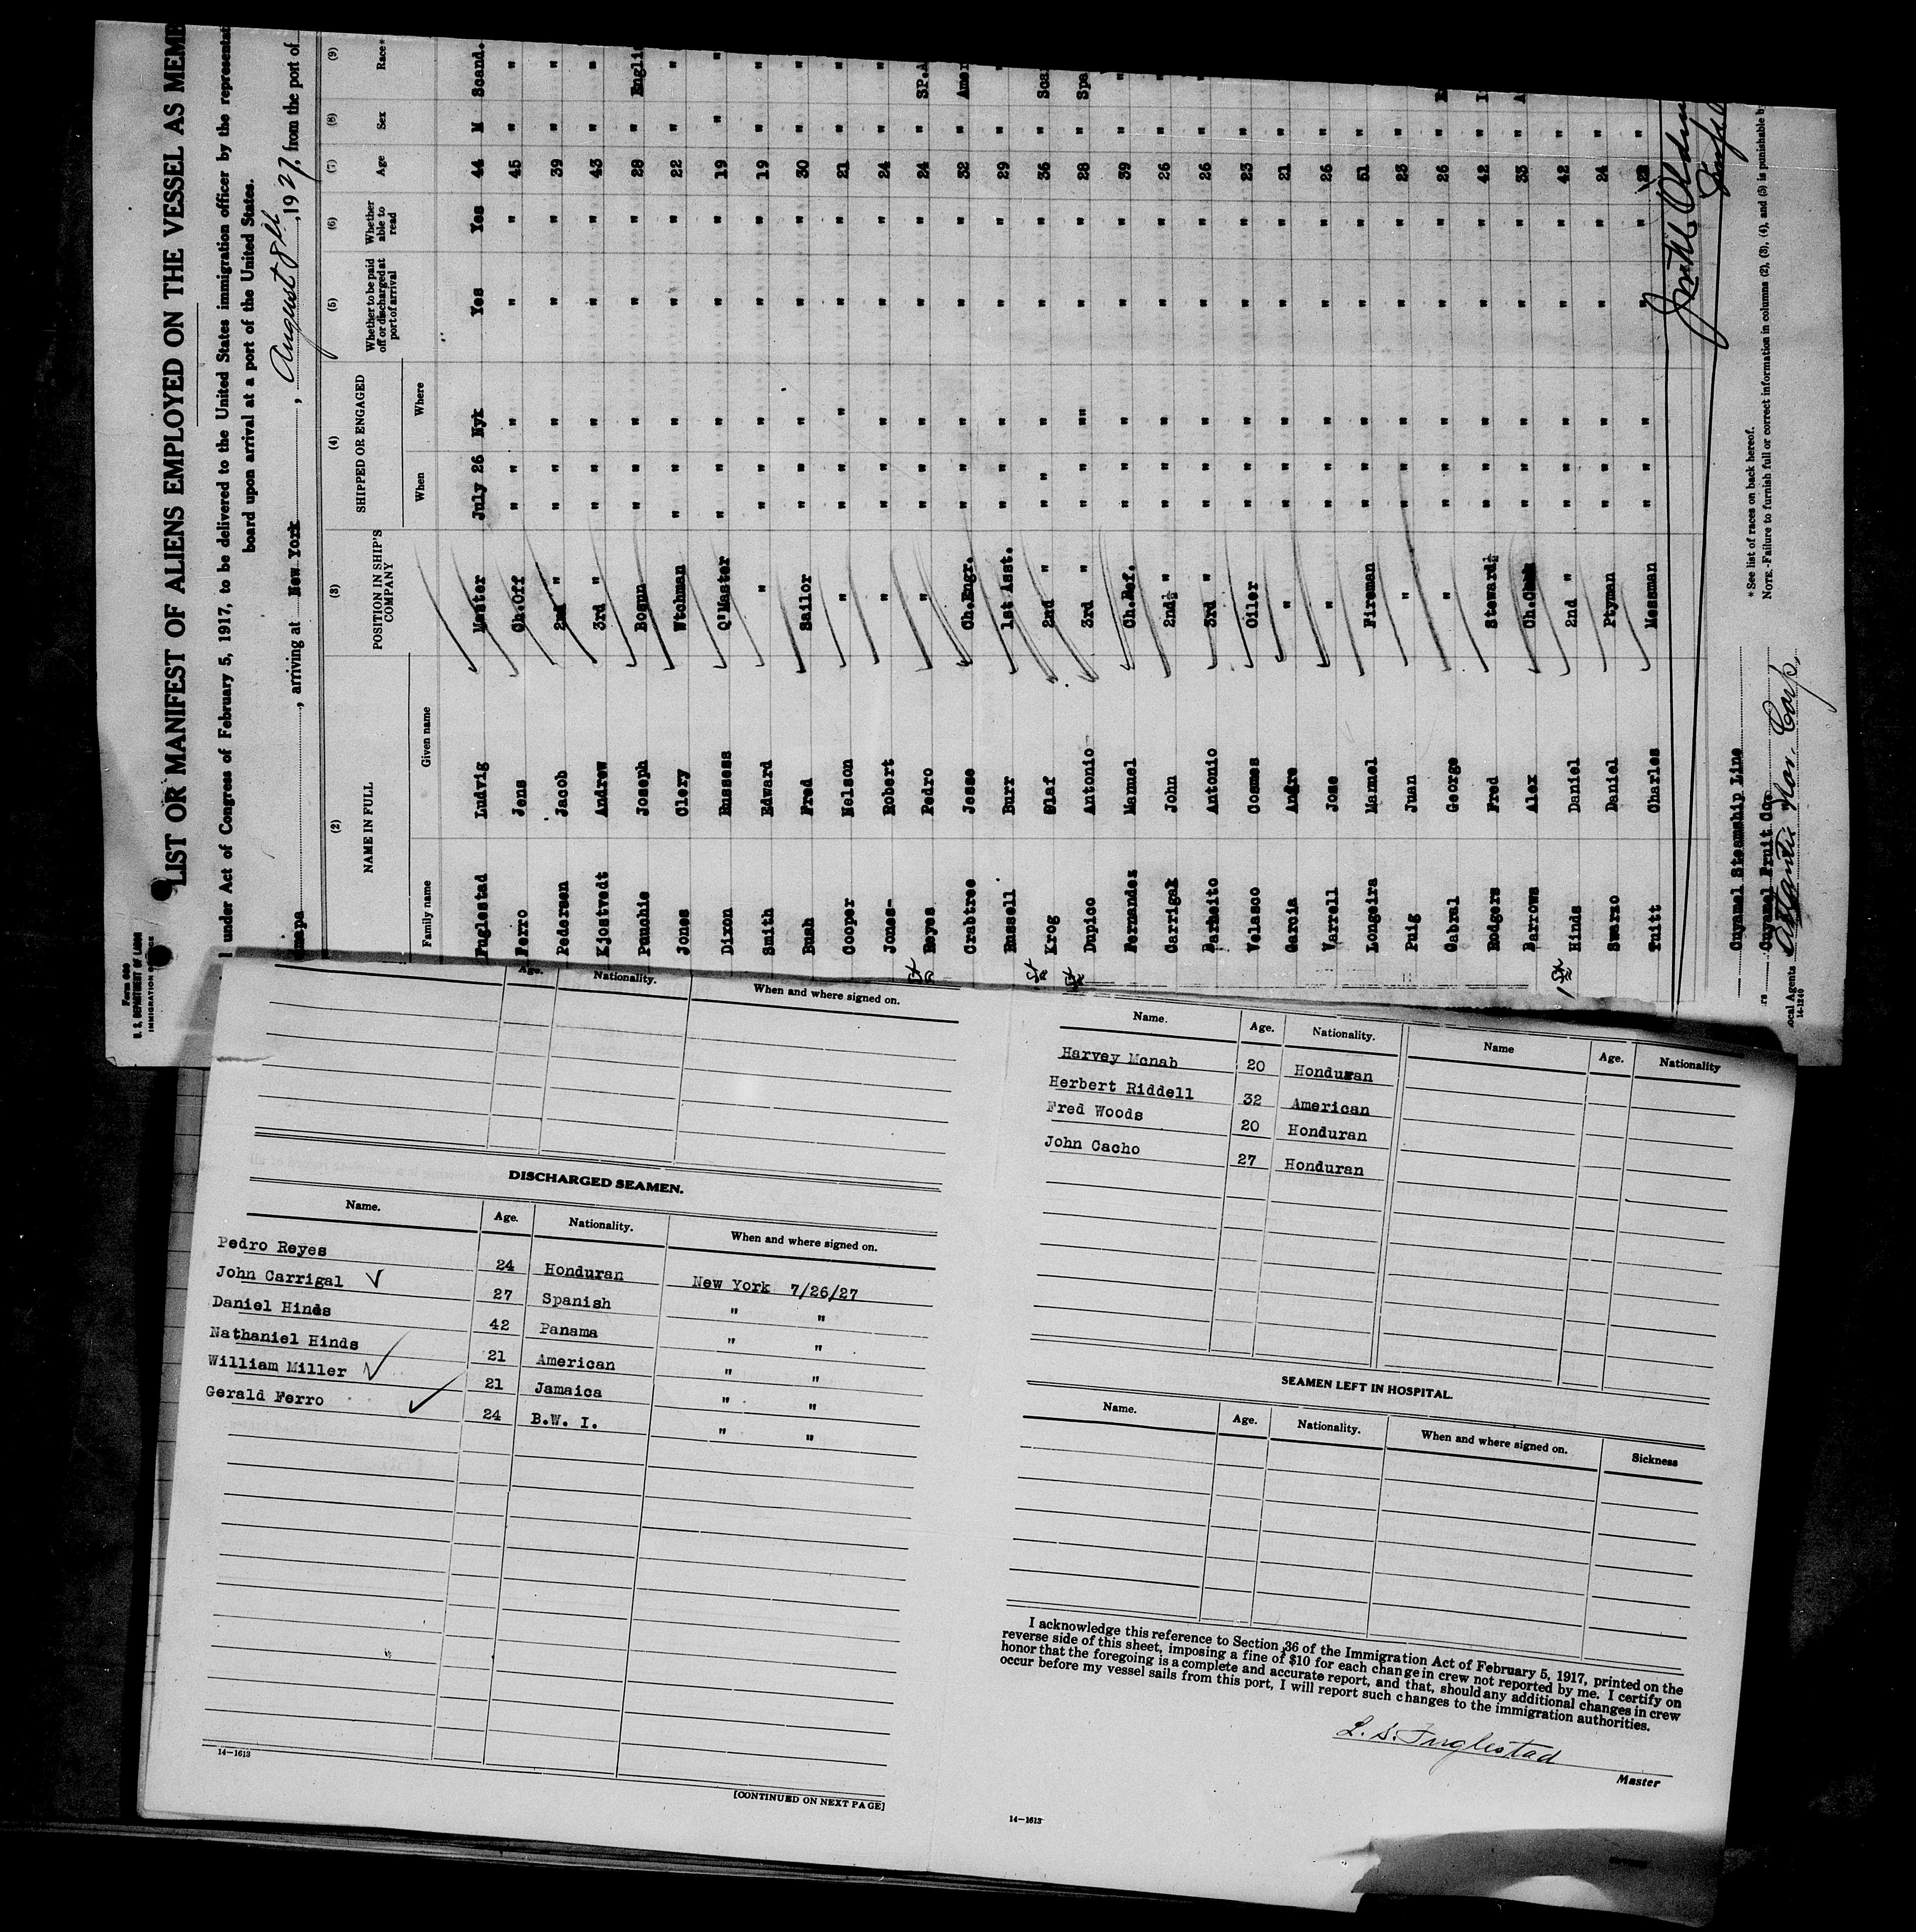 Form 689
U. S. DEPARTMENT OF LABOR
IMMIGRATION
LIST OR MANIFEST OF ALIENS EMPLOYED ON THE VESSEL AS MEMB
under Act of Congress of February 5, 1917, to be delivered to the United States immigration officer by the representati
board upon arrival at a port of the United States.
, arriving at New York , August 8th , 1927, from the port of
(2) (3) (4) (5) (6) (7) (8) (9)
NAME IN FULL POSITION IN SHIP'S COMPANY SHIPPED OR ENGAGED Whether to be paid off or discharged at port of arrival Whether able to read Age Sex Race*
Family name Given name When Where
Fuglestad Ludvig Master July 26 Nyk Yes Yes 44 M Scand.
Ferro Jens Ch.Off " " " " " 45 " "
Pedersen Jacob 2nd " " " " " " 39 " "
Kjostvedt Andrew 3rd " " " " " " 43 " "
Penchie Joseph Bosun " " " " " 28 " Engli
Jones Clery Wtchman " " " " " 22 " "
Dixon Russess Q'Master " " " " " 19 " "
Smith Edward " " " " " " 19 " "
Bush Fred Sailor " " " " " 30 " "
Cooper Nelson " " " " " " 21 " "
Jones- Robert " " " " " " 24 " "
Reyes Pedro " " " " " " 24 " SP.A
Crabtree Jesse Ch.Engr. " " " " " 32 " Amer
Russell Burr 1st Asst. " " " " " 29 " "
Krog Olaf 2nd " " " " " " 36 " Scan
Dupico Antonio 3rd " " " "" " " 28 " Spa
Fernandez Manuel Ch.Ref. " " " " " 39 " "
Carrigal John 2nd " " " " " " 26 " "
Barheito Antonio 3rd " " " " " " 26 " "
Velasco Cosmes Oiler " " " " " 23 "
Garcia Andre " " " " " " 21 "
Varrell Jose " " " " " " 26 "
Longeira Manuel Fireman " " " " " 51 "
Puig Juan " " " " " " 23 "
Cabral George " " " " " " 26 "
Rodgers Fred Steward " " " " " 42 "
Barrows Alex Ch. " " " " " 33 " A
Hinds Daniel 2nd " " " " " " 42 "
Swarzo Daniel Ptyman " " " " " 24 "
Tuitt Charles Messman " " " " " "
Cuyamel Steamship Line
Cuyamel Fruit Co.
ocal Agents Atlantic Nav. Corp.
14-1240
*See list of races on back hereof.
NOTE.-Failure to furnish full or correct information in columns (2), (3), (4), and (5) is punishable b
Age. Nationality. When and where signed on.
DISCHARGED SEAMEN.
Name. Age. Nationality. When and where signed on.
Pedro Reyes 24 Honduran New York 7/26/27
John Carrigal 27 Spanish " "
Daniel Hinds 42 Panama " "
Nathaniel Hinds 21 American " "
William Miller 21 Jamaica " "
Gerald Ferro 24 B.W. I. " "
14-1613
[CONTINUED ON NEXT PAGE]
Name. Age. Nationality. Name Age. Nationality
Harvey Mcnab 20 Honduran
Herbert Riddell 32 American
Fred Woods 20 Honduran
John Cacho 27 Honduran
SEAMEN LEFT IN HOSPITAL.
Name. Age. Nationality. When and where signed on. Sickness
I acknowledge this reference to Section 36 of the Immigration Act of February 5, 1917, printed on the
reverse side of this sheet, imposing a fine of $10 for each change in crew not reported by me. I certify on
honor that the foregoing is a complete and accurate report, and that, should any additional changes in crew
occur before my vessel sails from this port, I will report such changes to the immigration authorities.
L. S. Fuglestad
Master
14-1613